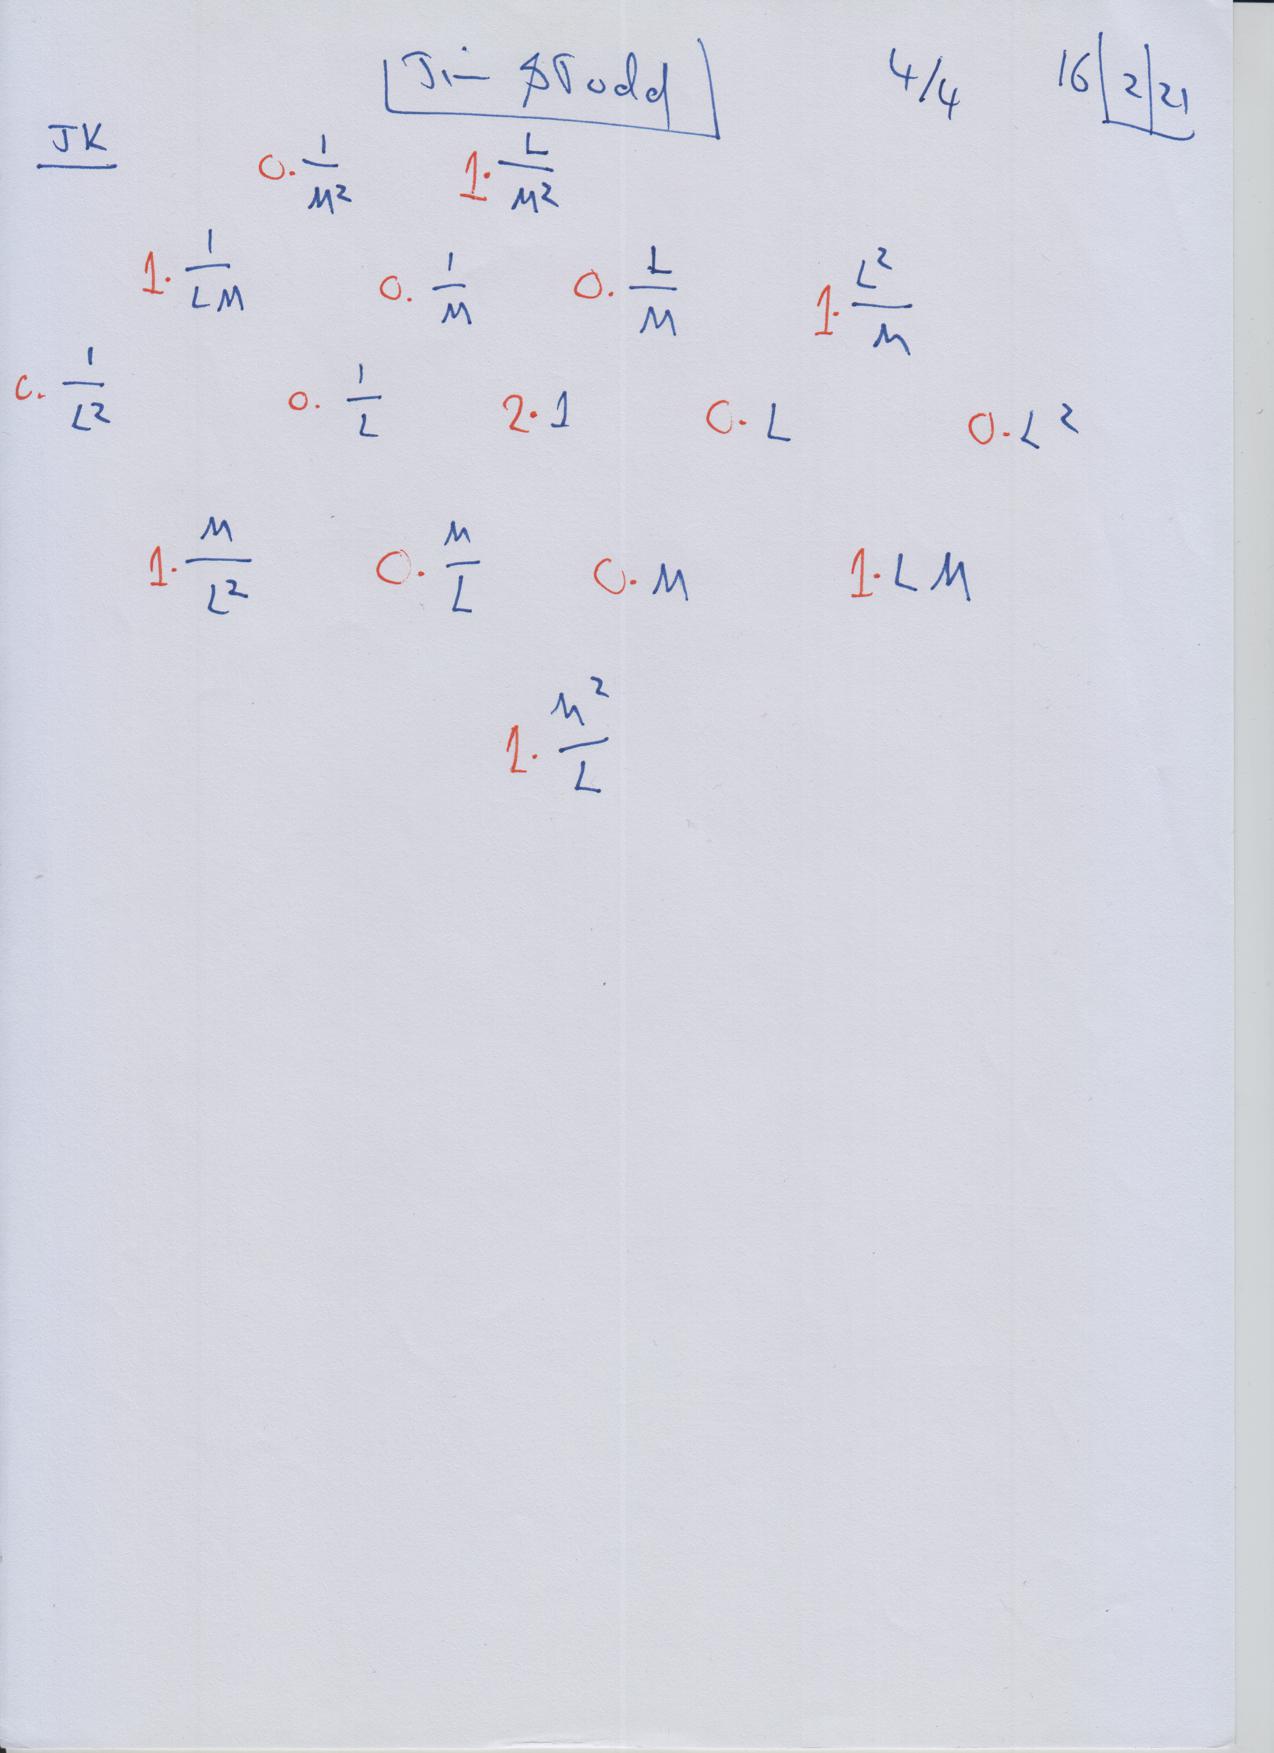 Jim $Todd 4/4 16/2/21
JK
0. 1/M² 1. L/M²
1. 1/LM 0. 1/M 0. L/M 1. L²/M
0. 1/L² 0. 1/L 2. 1 0. L 0. L²
1. M/L² 0. M/L 0. M 1. LM
1. M²/L